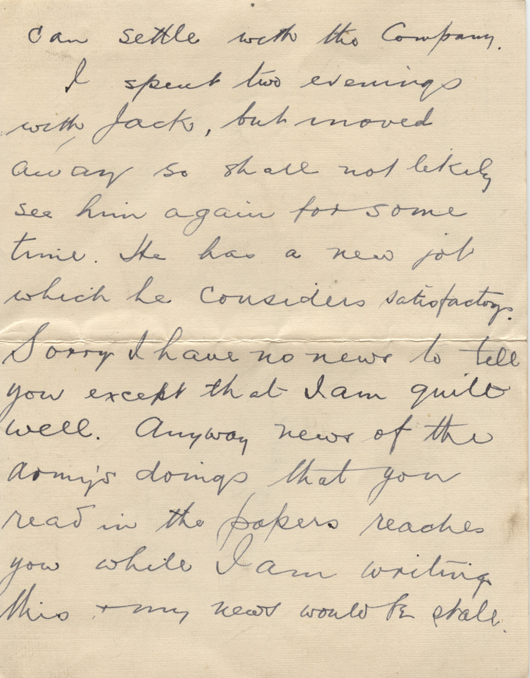 can settle with the Company.
I spent two evenings
with Jack, but moved
away so shall not likely
see him again for some
time. He has a new job
which he considers satisfactory.
Sorry I have no news to tell
you except that I am quite
well. Anyway news of the
army's doings that you
read in the papers reaches
you while I am writing
this + my news would be stale.